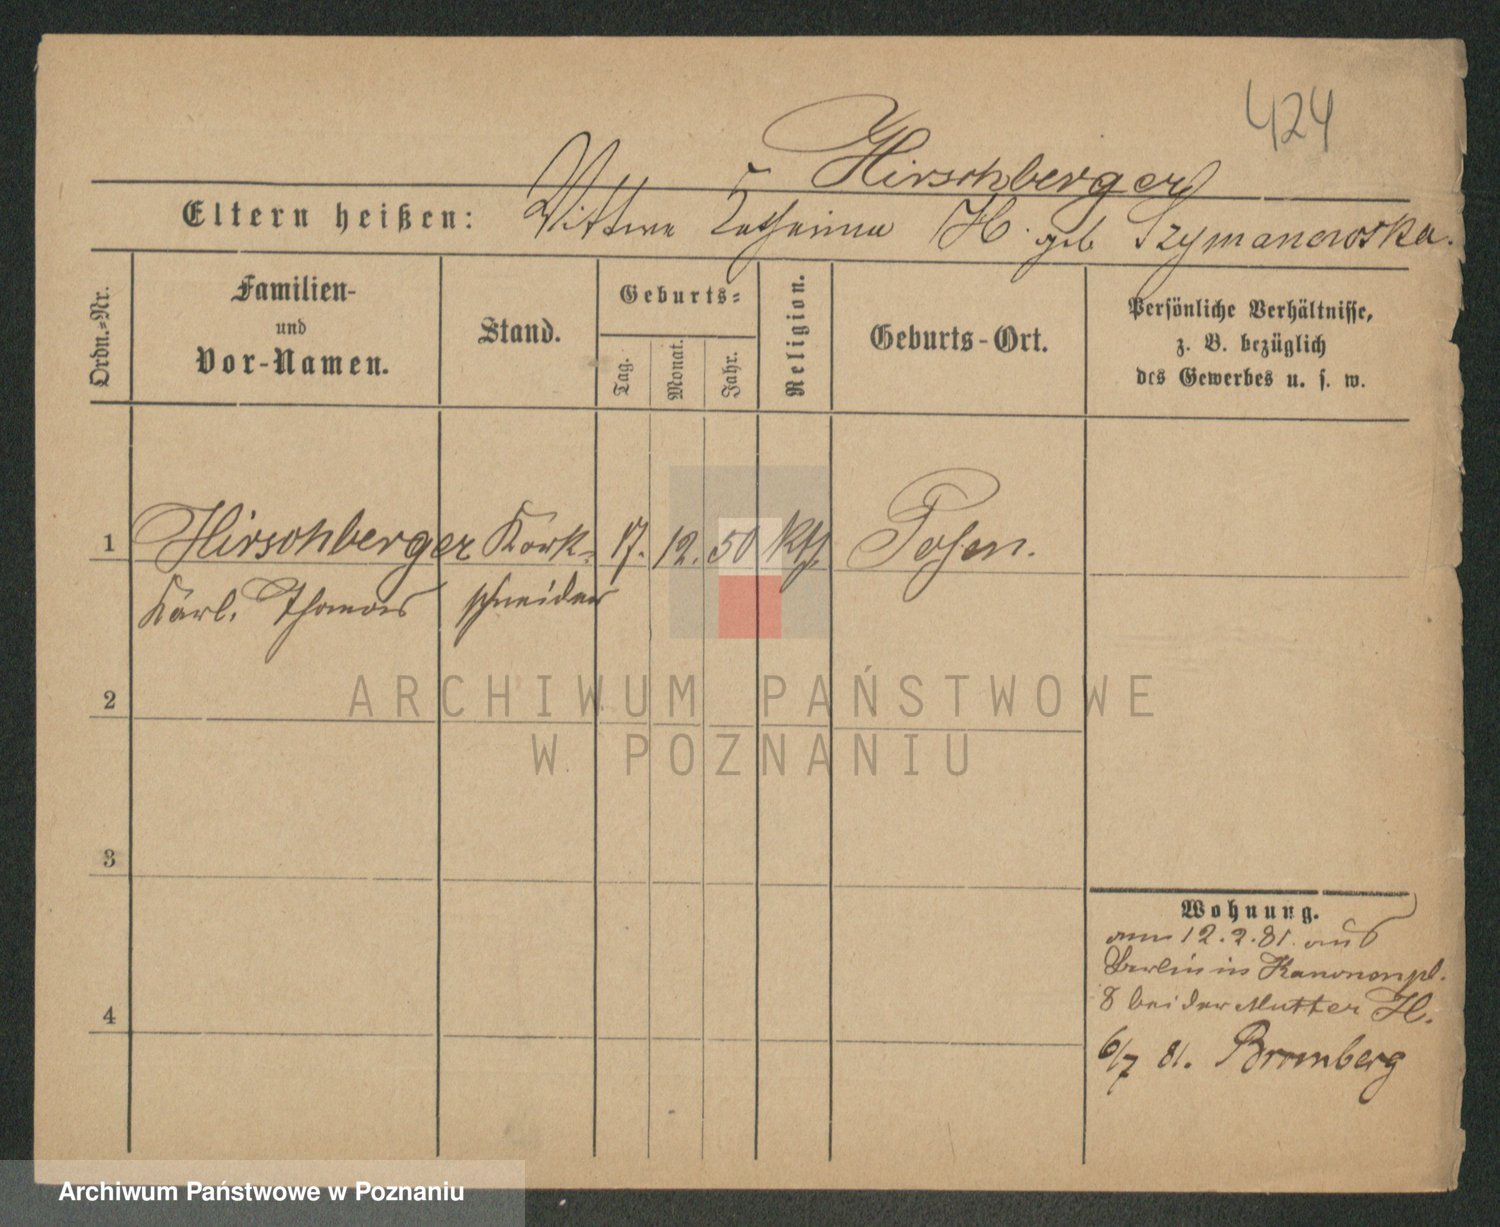 424
Hirschberger
Eltern heißen: Wittwe Catharina H. geb Szymanowska.
Ordn.=Nr.
Familien-
und
Vor-Namen.
Stand.
Geburts=
Tag.
Monat.
Jahr.
Religion.
Geburts-Ort.
Persönliche Verhältnisse,
z. B. bezüglich
des Gewerbes u. s. w.
1 Hirschberger Kork- 17. 12. 50 kth. Posen.
Karl. Thomas schneider
2
3
4
Wohnung.
am 12.2.81. aus
Berlin in Kanonenpl.
8 bei der Mutter H.
6/7 81. Bromberg
ARCHIWUM PAŃSTWOWE
W POZNANIU
Archiwum Państwowe w Poznaniu